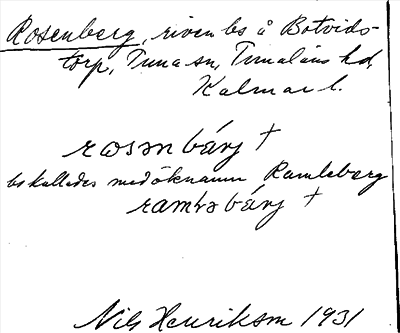 Rosenberg, riven bs å Botvids-
torp, Tuna sn, Tunaläns hd,
Kalmar l.
rosən bärj †
bs kallades med öknamn Ramleberg
ramlə bärj †
Nils Henriksson 1931